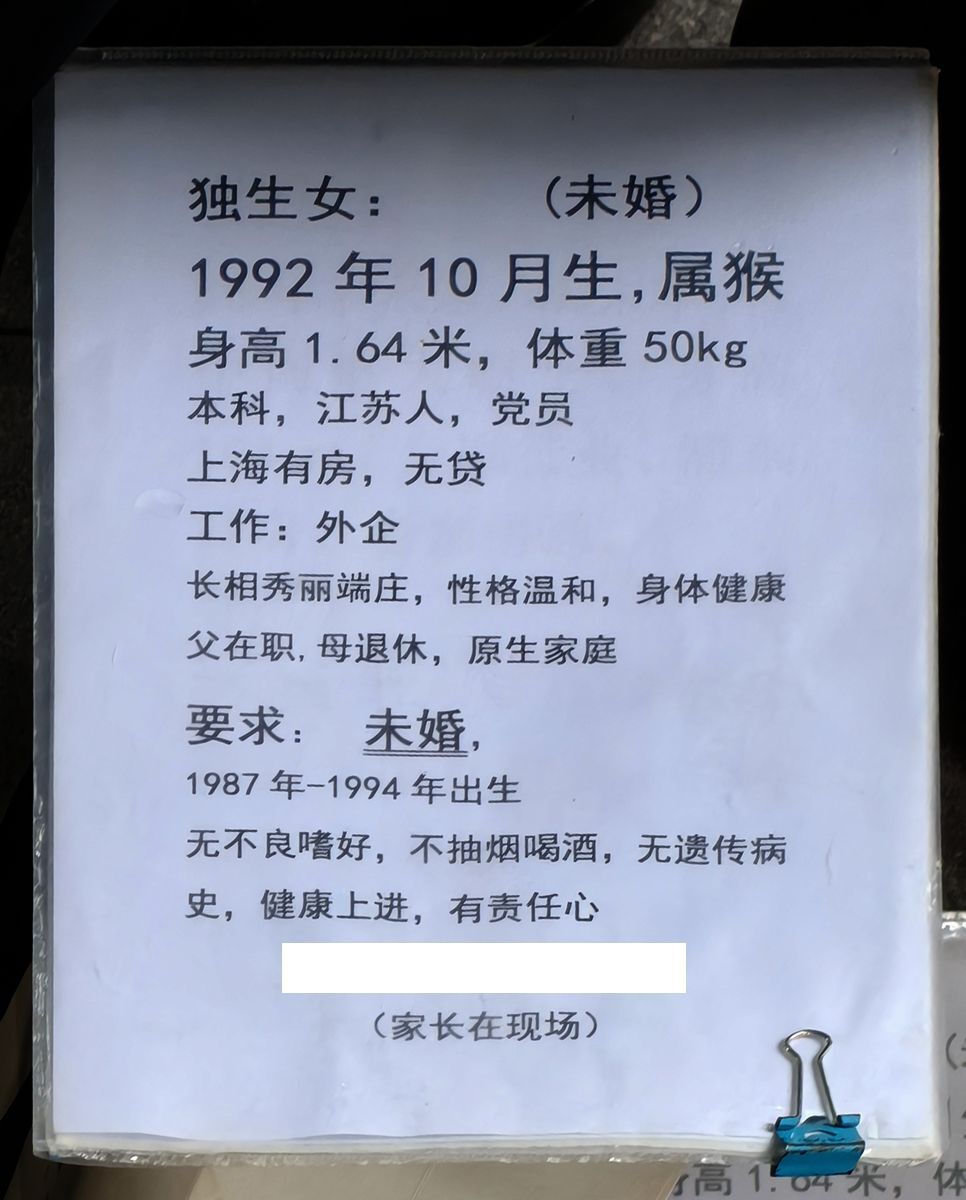 独生女：　　　（未婚）
1992年10月生,属猴
身高1.64米，体重50kg
本科，江苏人，党员
上海有房，无贷
工作：外企
长相秀丽端庄，性格温和，身体健康
父在职,母退休，原生家庭
要求：　未婚,
1987年-1994年出生
无不良嗜好，不抽烟喝酒，无遗传病
史，健康上进，有责任心
（家长在现场）
高1.64米，体